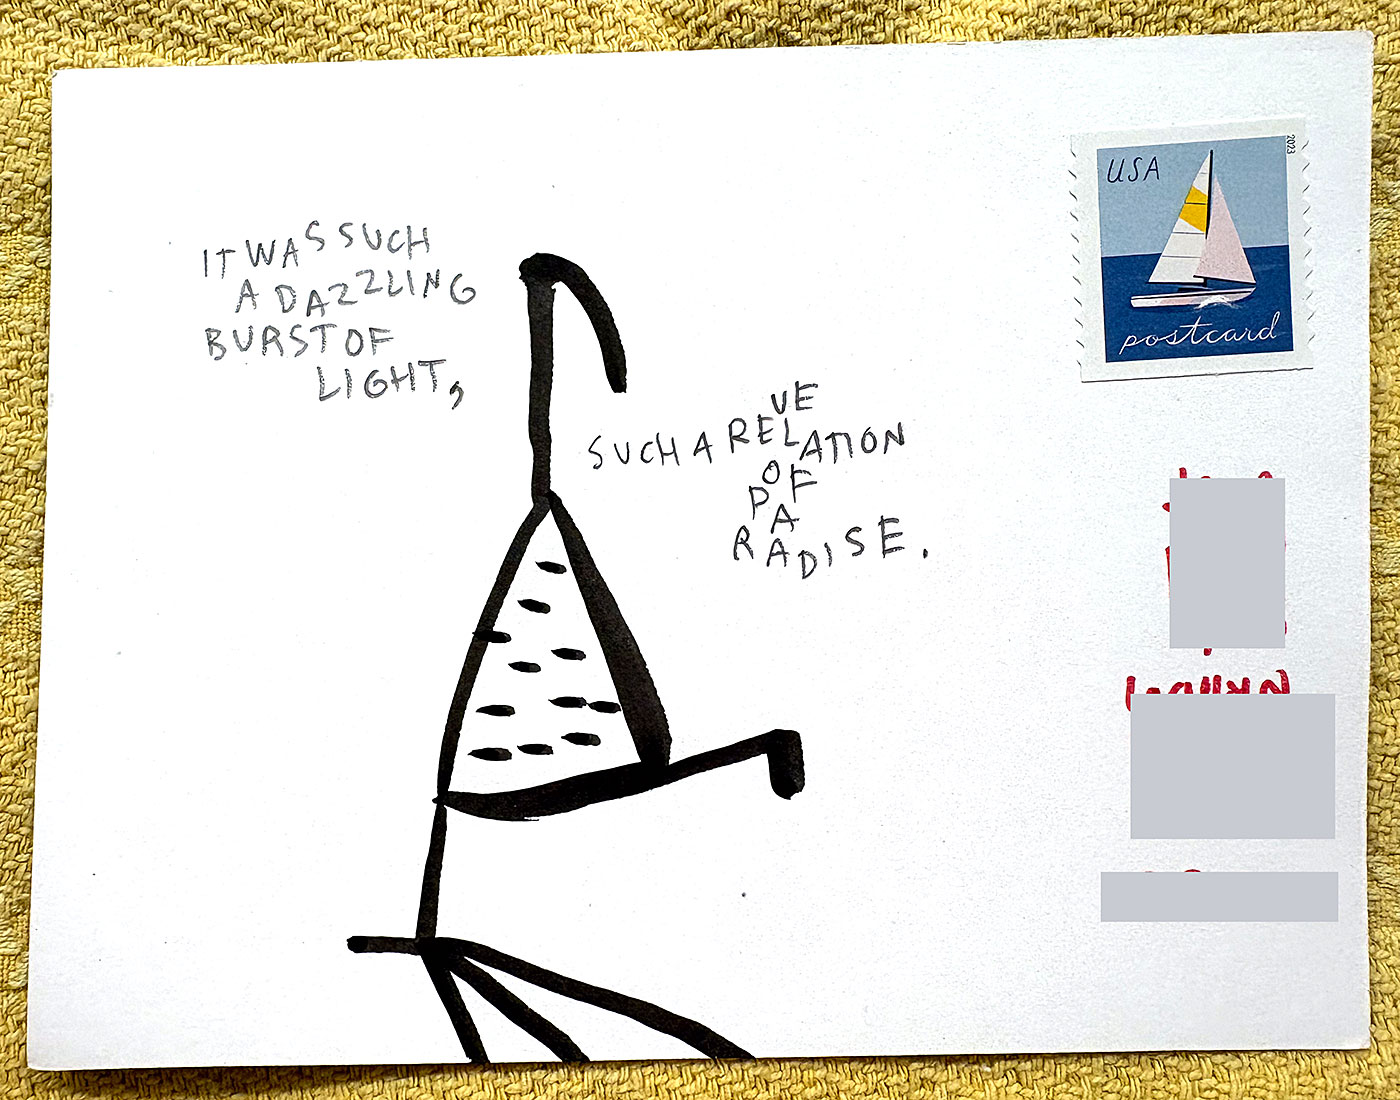 IT WAS SUCH
A DAZZLING
BURST OF
LIGHT,
VE
SUCH A RELATION
OF
PA
RADISE.
USA
2023
postcard